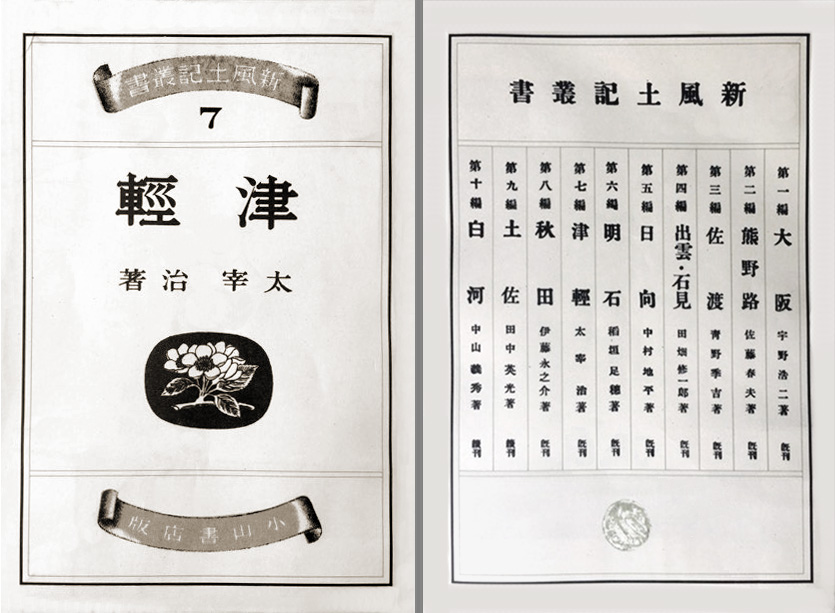 新風土記叢書
7
津輕
太宰治著
小山書店版
新風土記叢書
第一編 大阪 宇野浩二著 既刊
第二編 熊野路 佐藤春夫著 既刊
第三編 佐渡 靑野季吉著 既刊
第四編 出雲・石見 田畑修一郎著 既刊
第五編 日向 中村地平著 既刊
第六編 明石 稻垣足穗著 既刊
第七編 津輕 太宰治著 既刊
第八編 秋田 伊藤永之介著 既刊
第九編 土佐 田中英光著 續刊
第十編 白河 中山義秀著 續刊